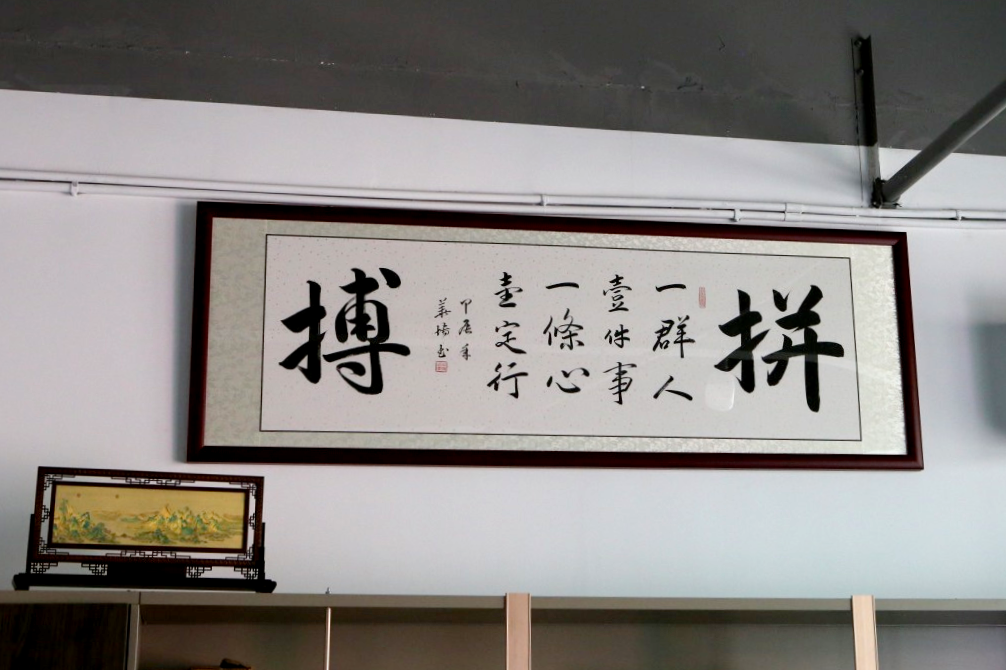 拼
一群人
壹件事
一條心
壹定行
甲辰年
搏